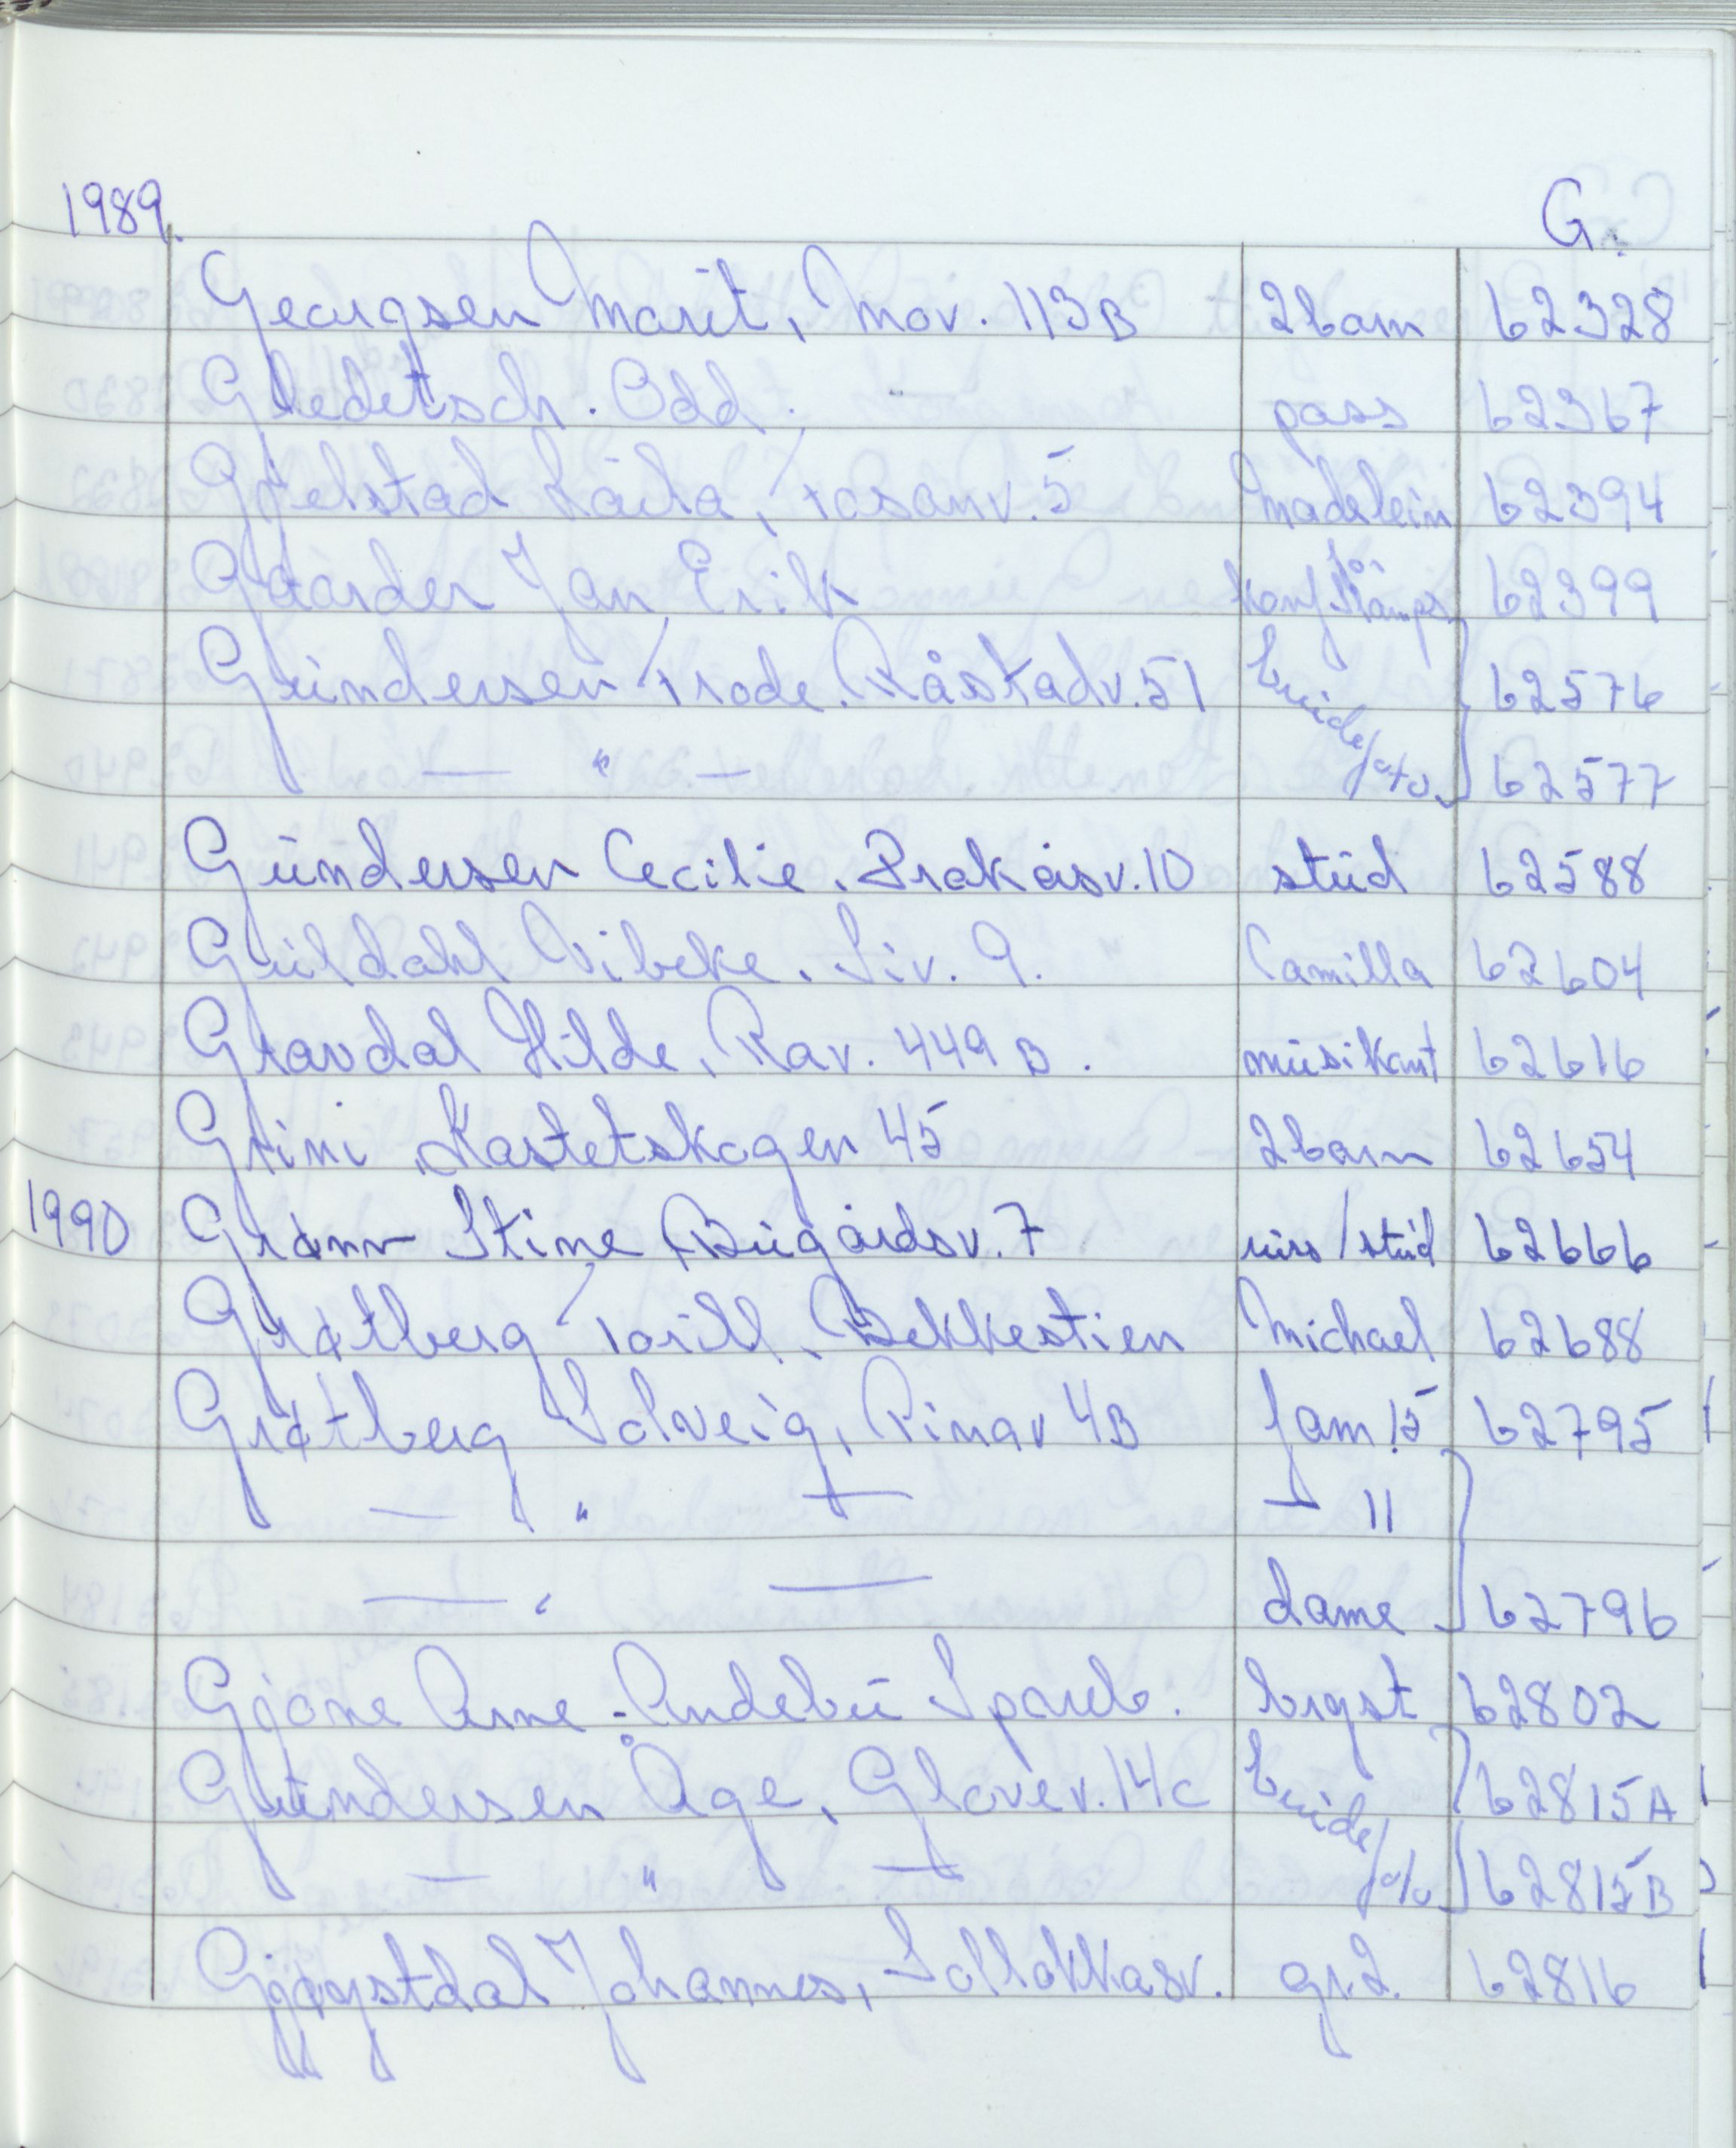 1989. G.
Georgsen Marit, Mov. 113B 2barn 62328
Gleditsch. Odd. pass 62367
Gjelstad Laila, Fosanv. 5 Madelein 62394
Gaarder Jan Erik konf/kamps 62399
Gundersen Frode. Råstadv. 51 brude/oto 62576
— " — 62577
Gundersen Cecilie. Prakåsv. 10 stud 62588
Guldahl Vibeke. Siv. 9. Camilla 62604
Gravdal Hilde, Rav. 449 B. musikant 62616
Grini, Kastetskogen 45 2barn 62654
1990 Grønn Stine, Bugårdsv. 7 russ/stud 62666
Grøtberg Torill. Bekkestien Michael 62688
Grøtberg Solveig, Pinav 4B fam 15 62795
— " — — 11
— " — dame 62796
Gjone Arne - Andebu Spareb. bryst 62802
Gundersen Åge, Glover. 14c brude/oto 62815A
— " — 62815B
Gjøystdal Johannes, Solløkkasv. gr.2. 62816